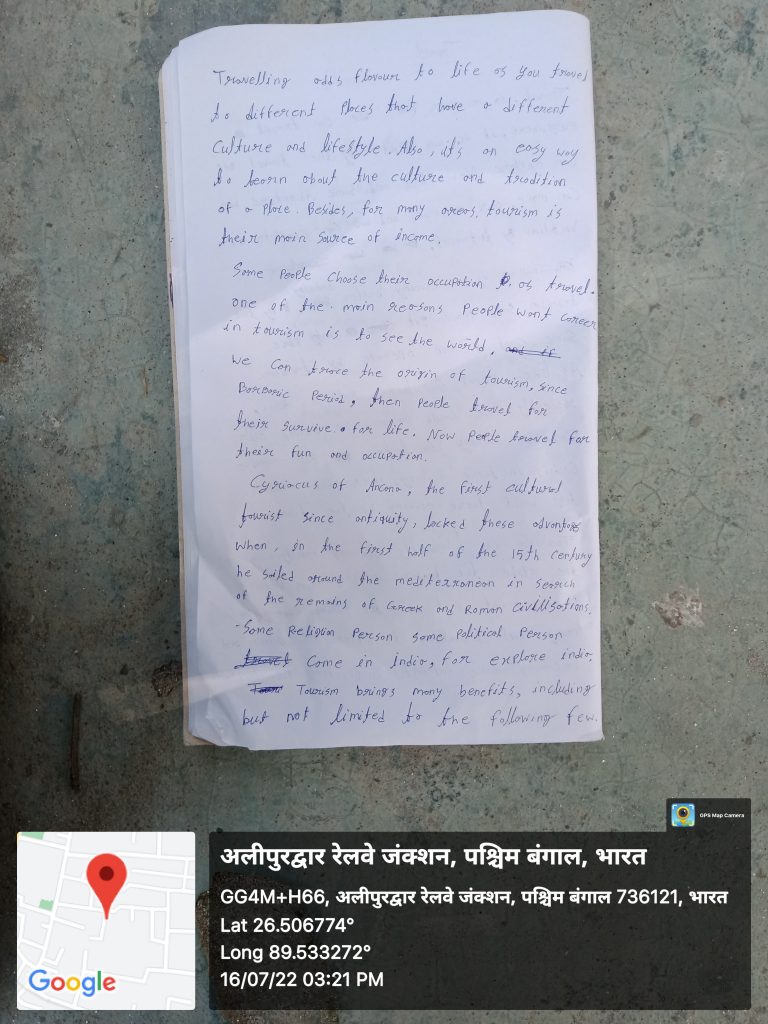 Travelling adds flavour to life as you travel
to different places that have a different
culture and lifestyle. Also, it's an easy way
to learn about the culture and tradition
of a place. Besides, for many areas, tourism is
their main source of income.
Some people choose their occupation as travel.
one of the main reasons people want career
in tourism is to see the world. and if
we can trace the origin of tourism, since
Barbaric Period, then people travel for
their survive. for life. Now people travel for
their fun and occupation.
Cyriacus of Ancona, the first cultural
tourist since antiquity, lacked these advantage
when, in the first half of the 15th century
he sailed around the mediterranean in search
of the remains of Greek and Roman civilisations.
Some Religion Person some Political Person
travel Come in india, for explore india.
Tourism brings many benefits, including
but not limited to the following few.
GPS Map Camera
अलीपुरद्वार रेलवे जंक्शन, पश्चिम बंगाल, भारत
GG4M+H66, अलीपुरद्वार रेलवे जंक्शन, पश्चिम बंगाल 736121, भारत
Lat 26.506774°
Long 89.533272°
16/07/22 03:21 PM
Google